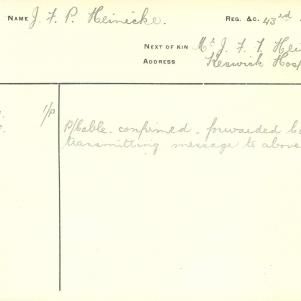 NAME J. F. P. Heinicke. REG. &C. 43rd
NEXT OF KIN Mr J. F. F. Hei
ADDRESS Keswick Hos
1/P P/Cable confirmed. forwarded
transmitting message to above